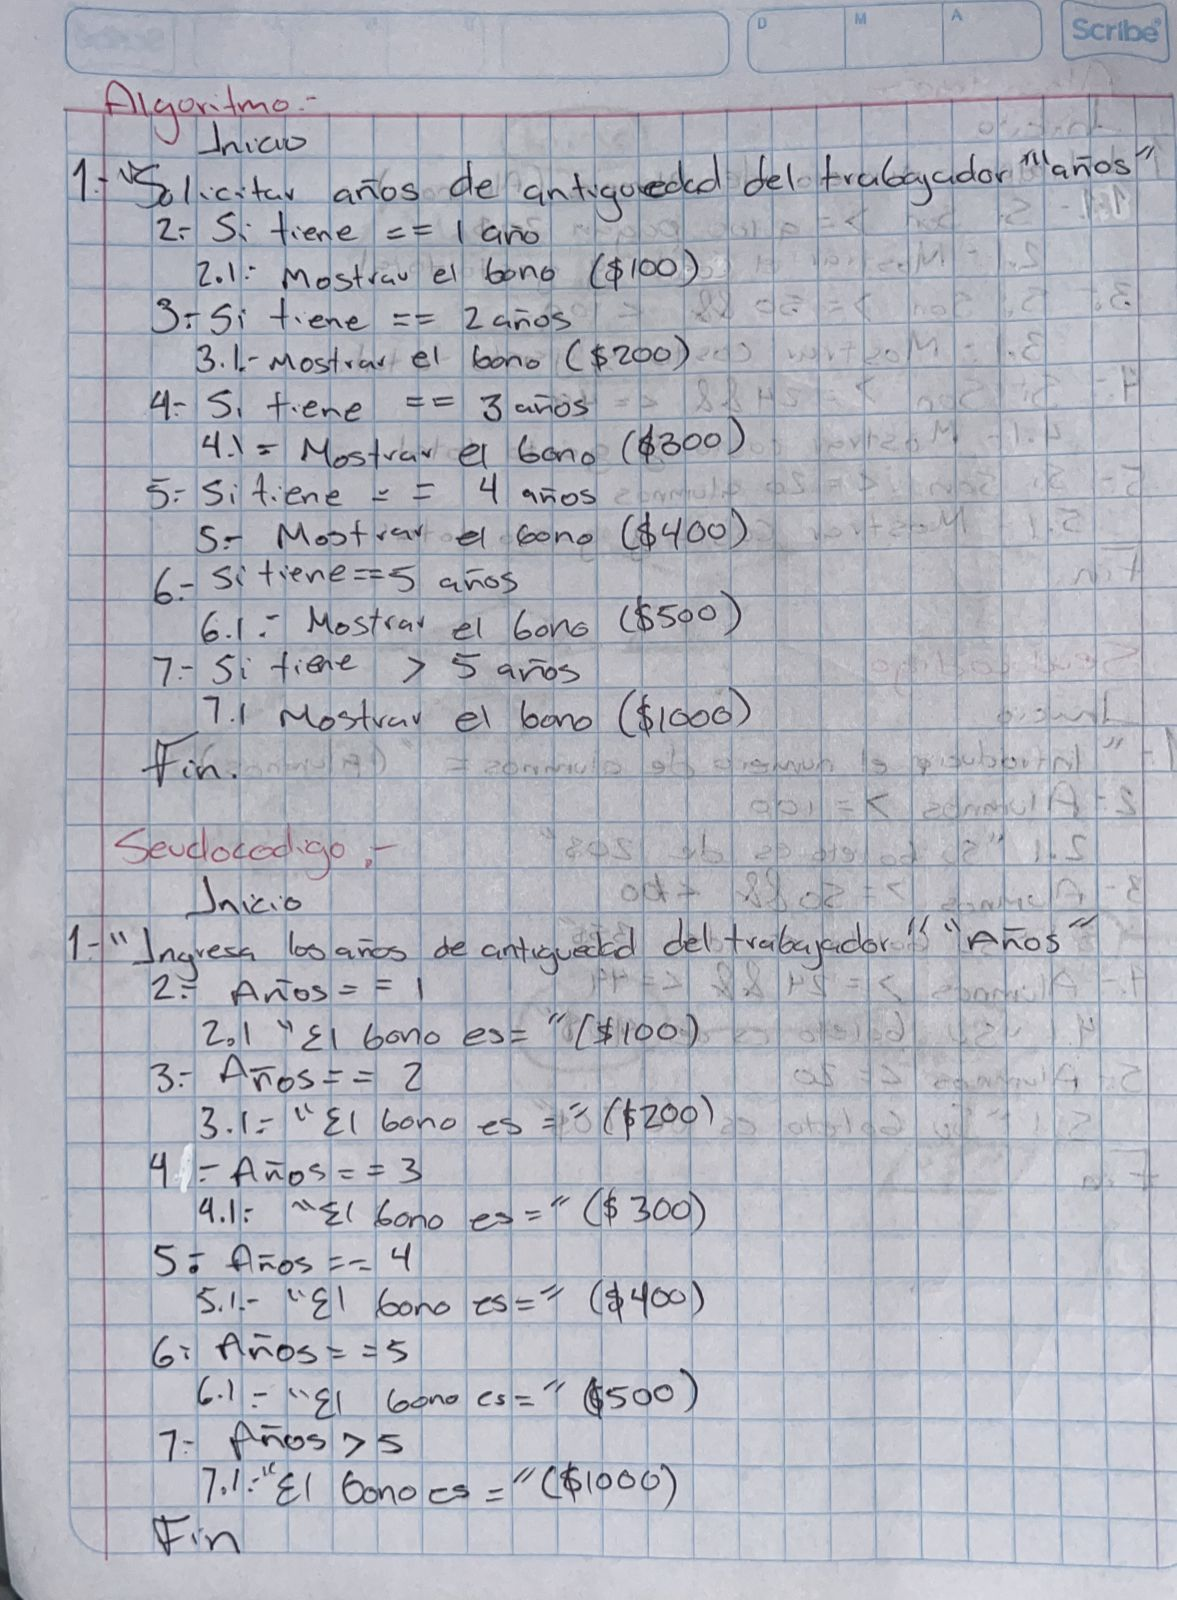 D M A Scribe
Algoritmo.-
Inicio
1.- "Solicitar años de antiguedad del trabajador" "años"
2.- Si tiene == 1 año
2.1.- Mostrar el bono ($100)
3.- Si tiene == 2 años
3.1.- Mostrar el bono ($200)
4.- Si tiene == 3 años
4.1 = Mostrar el bono ($300)
5.- Si tiene == 4 años
5.- Mostrar el bono ($400)
6.- Si tiene == 5 años
6.1.- Mostrar el bono ($500)
7.- Si tiene > 5 años
7.1 Mostrar el bono ($1000)
Fin.
Seudocodigo.-
Inicio
1.- "Ingresa los años de antiguedad del trabajador" "Años"
2.- Años == 1
2.1 "El bono es=" ($100)
3.- Años == 2
3.1.- "El bono es=" ($200)
4.- Años == 3
4.1.- "El bono es=" ($300)
5.- Años == 4
5.1.- "El bono es=" ($400)
6.- Años == 5
6.1.- "El bono es=" ($500)
7.- Años > 5
7.1.- "El bono es=" ($1000)
Fin